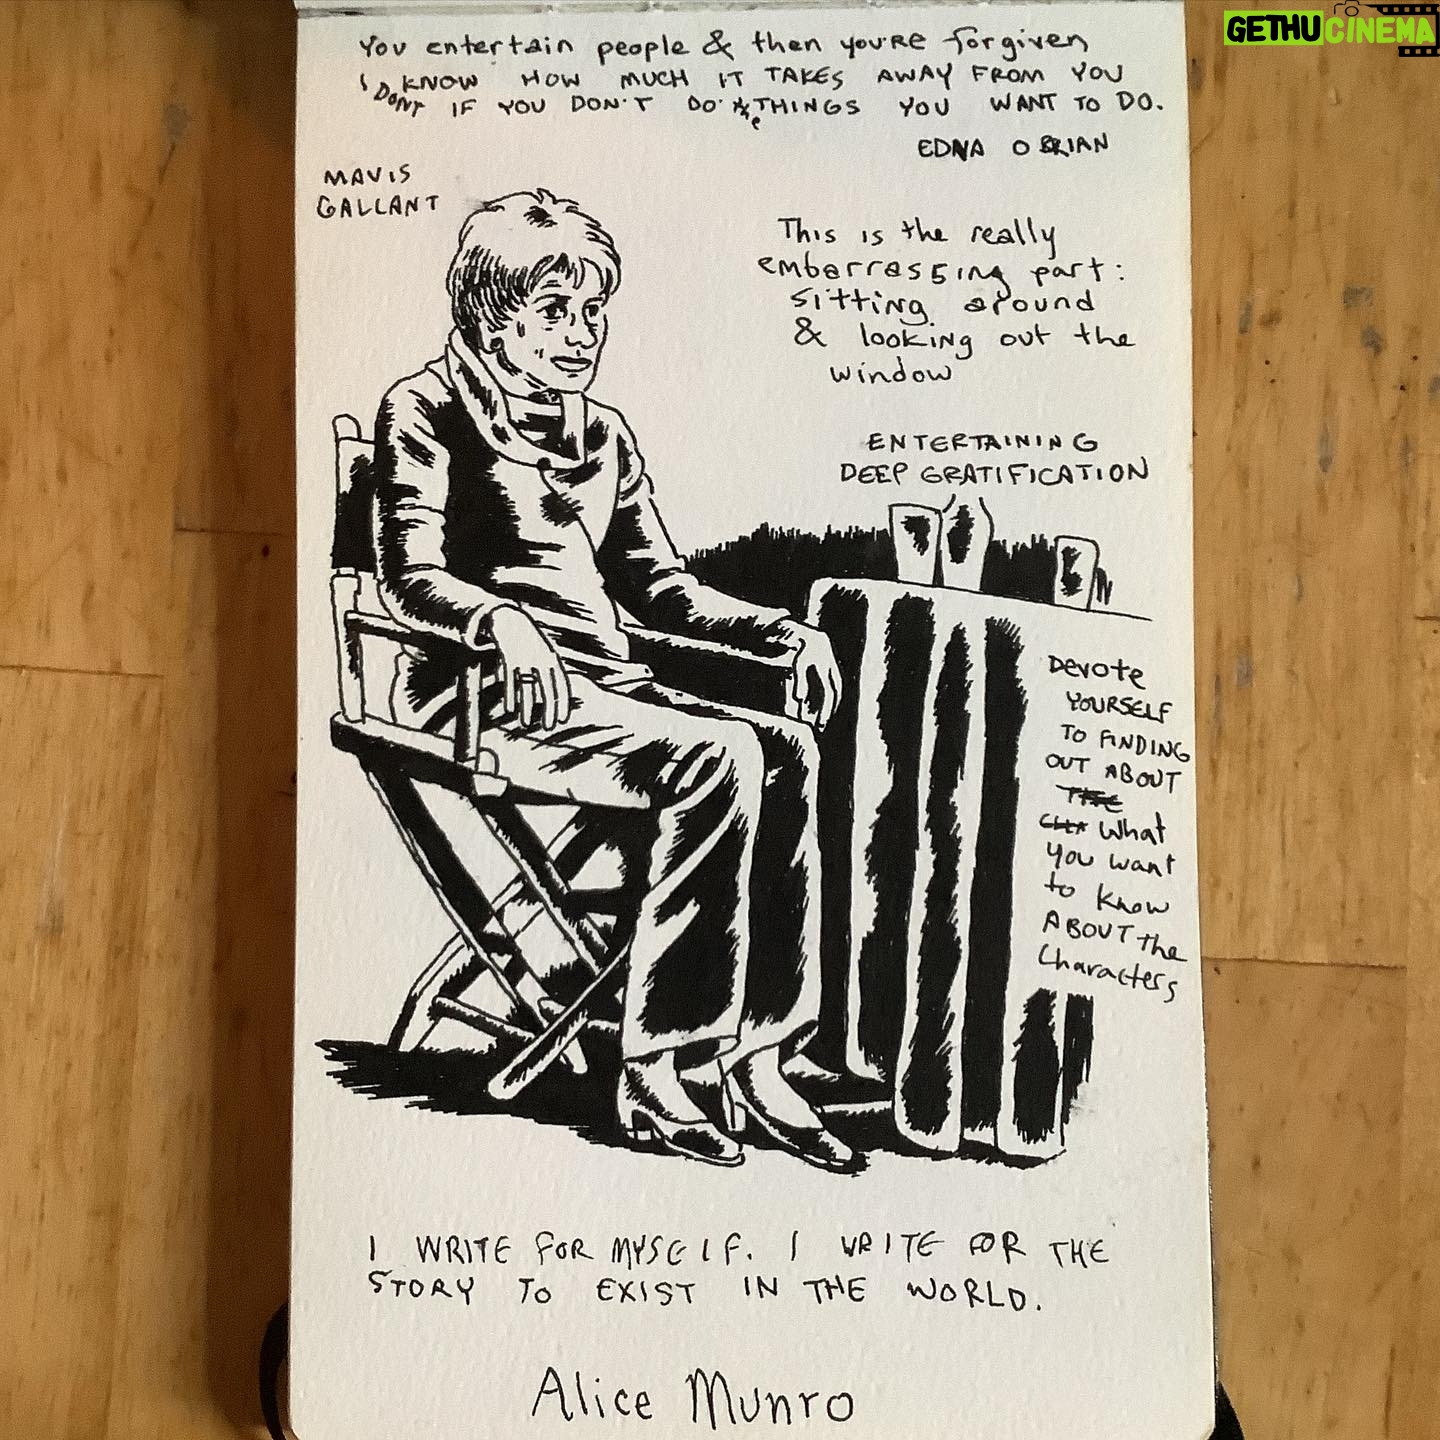 GETHUCINEMA
You entertain people & then you're forgiven
I DON'T KNOW HOW MUCH IT TAKES AWAY FROM YOU
IF YOU DON'T DO the THINGS YOU WANT TO DO.
EDNA O BRIAN
MAVIS
GALLANT
This is the really
embarrassing part:
sitting around
& looking out the
window
ENTERTAINING
DEEP GRATIFICATION
Devote
YOURSELF
TO FINDING
OUT ABOUT
THE
What
You want
to know
ABOUT the
characters
I WRITE FOR MYSELF. I WRITE FOR THE
STORY TO EXIST IN THE WORLD.
Alice Munro